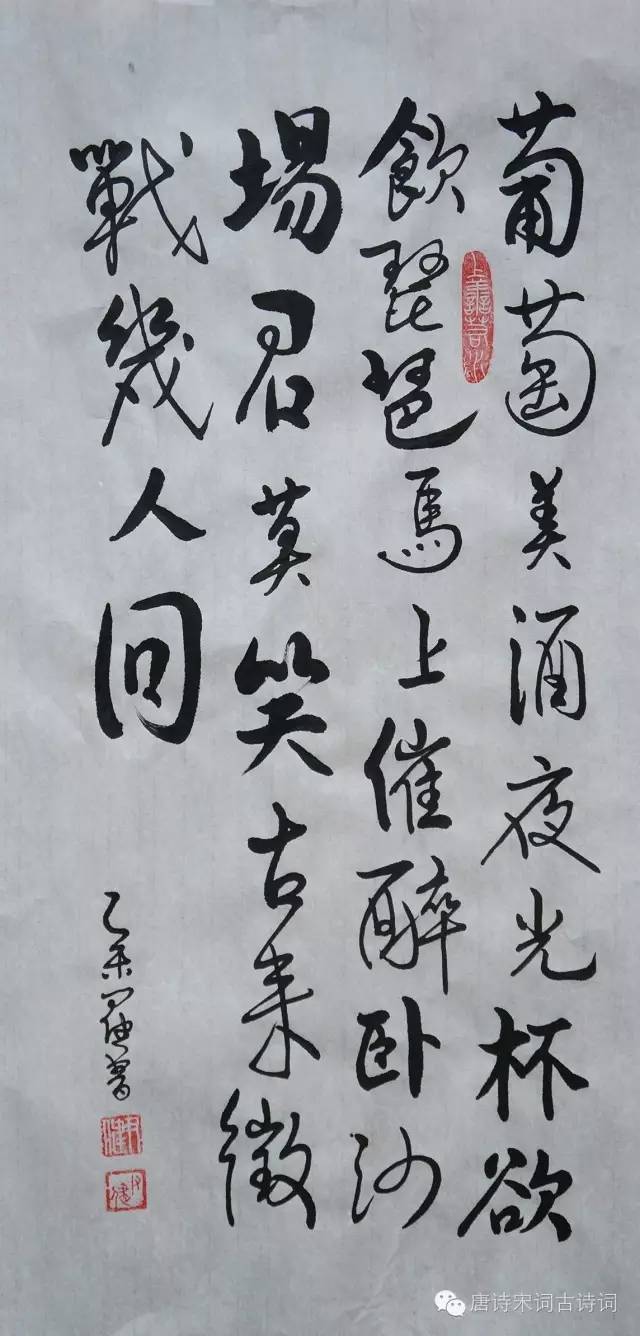 葡萄美酒夜光杯欲
飲琵琶馬上催醉卧沙
場君莫笑古来徵
戰幾人回
乙未書
上善若水
唐诗宋词古诗词